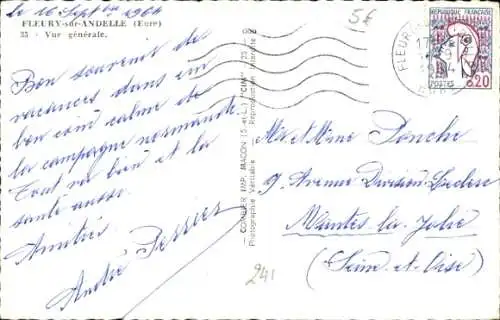 le 16 Septbre 1964
FLEURY-sur-ANDELLE (Eure)
35 - Vue générale.
Bon souvenir de
vacances dans un
bon coin calme de
la campagne normande.
Tout va bien et la
santé aussi.
Amitiés
André Perrier
COMBIER IMP. MACON (S.-et-L.) "CIM"
Photographie Véritable Reproduction Interdite
5€
FLEURY
RÉPUBLIQUE FRANÇAISE
POSTES 0,20
Mr et Mme Ponche
9, Avenue Division Leclerc
Mantes la Jolie
(Seine et Oise)
241